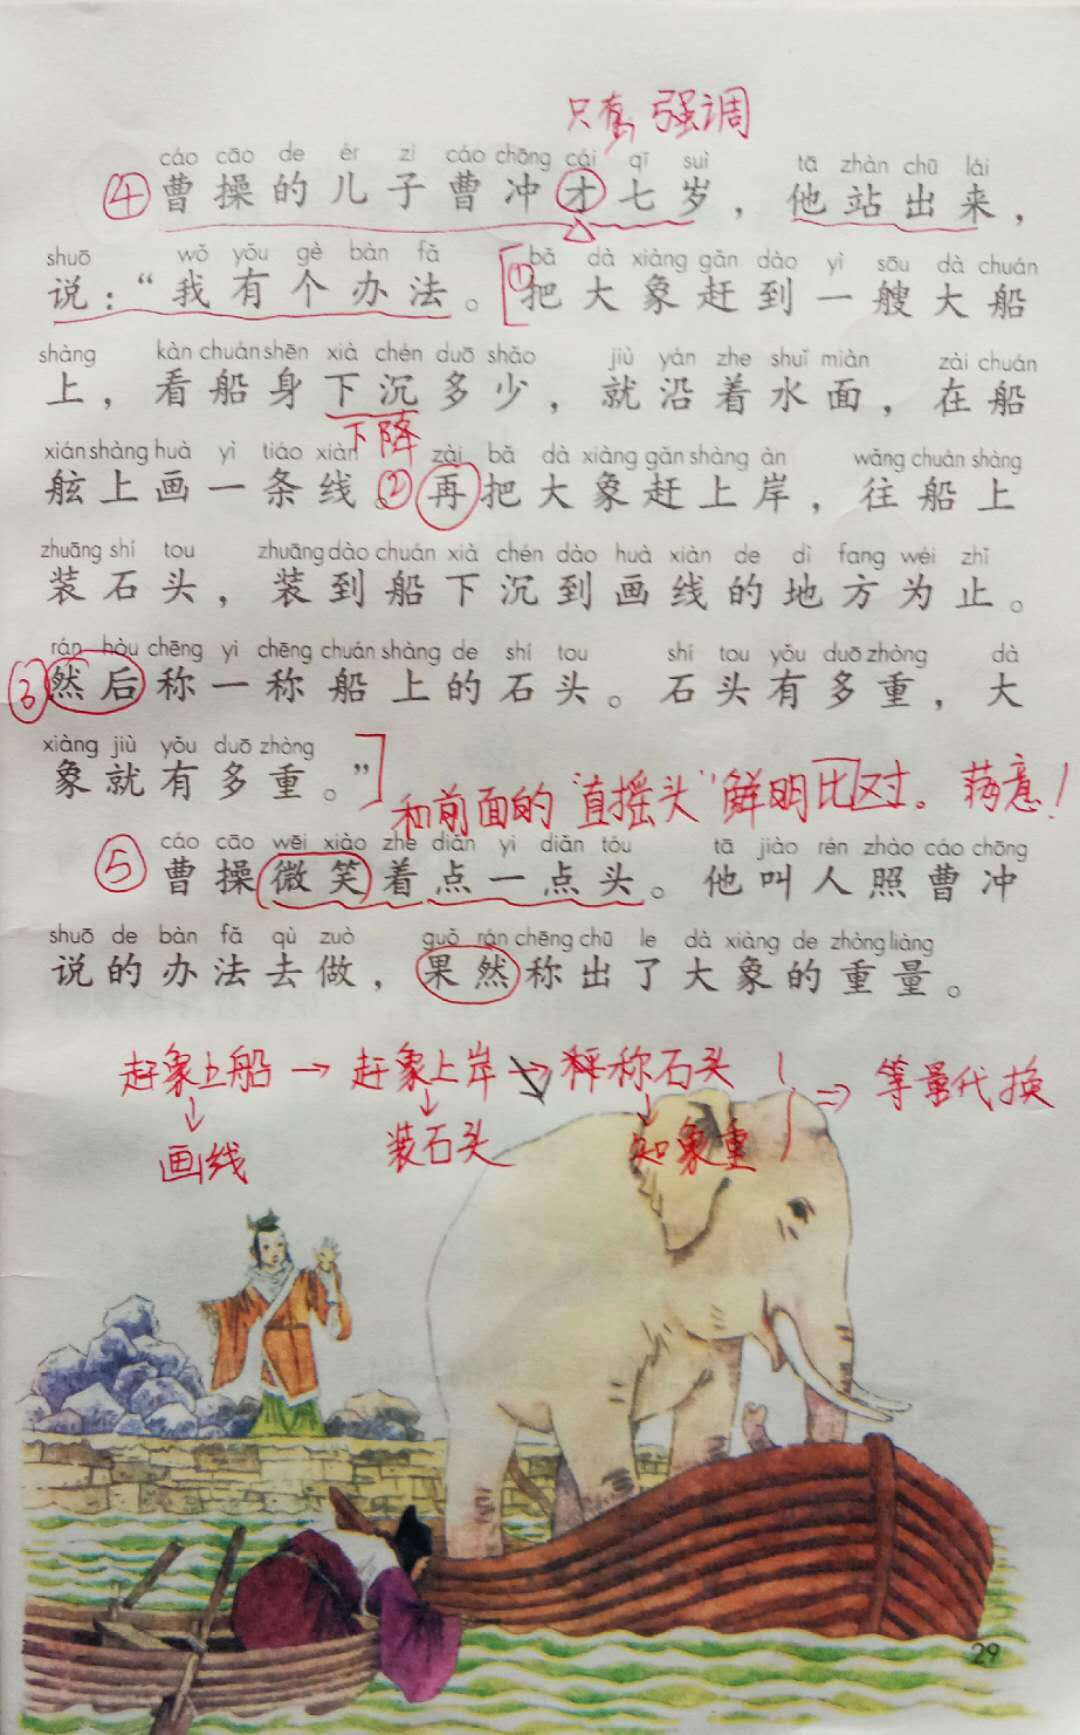 只有,强调
cáo cāo de ér zi cáo chōng cái qī suì tā zhàn chū lái
④曹操的儿子曹冲才七岁，他站出来，
shuō wǒ yǒu gè bàn fǎ bǎ dà xiàng gǎn dào yì sōu dà chuán
说：“我有个办法。①把大象赶到一艘大船
shàng kàn chuán shēn xià chén duō shǎo jiù yán zhe shuǐ miàn zài chuán
上，看船身下沉多少，就沿着水面，在船
下降
xián shàng huà yì tiáo xiàn zài bǎ dà xiàng gǎn shàng àn wǎng chuán shàng
舷上画一条线②再把大象赶上岸，往船上
zhuāng shí tou zhuāng dào chuán xià chén dào huà xiàn de dì fang wéi zhǐ
装石头，装到船下沉到画线的地方为止。
rán hòu chēng yi chēng chuán shàng de shí tou shí tou yǒu duō zhòng dà
③然后称一称船上的石头。石头有多重，大
xiàng jiù yǒu duō zhòng
象就有多重。”
和前面的“直摇头”鲜明比对。满意！
cáo cāo wēi xiào zhe diǎn yi diǎn tóu tā jiào rén zhào cáo chōng
⑤曹操微笑着点一点头。他叫人照曹冲
shuō de bàn fǎ qù zuò guǒ rán chēng chū le dà xiàng de zhòng liàng
说的办法去做，果然称出了大象的重量。
赶象上船→赶象上岸→称石头 ⇒等量代换
↓ ↓ ↓
画线 装石头 知象重
29